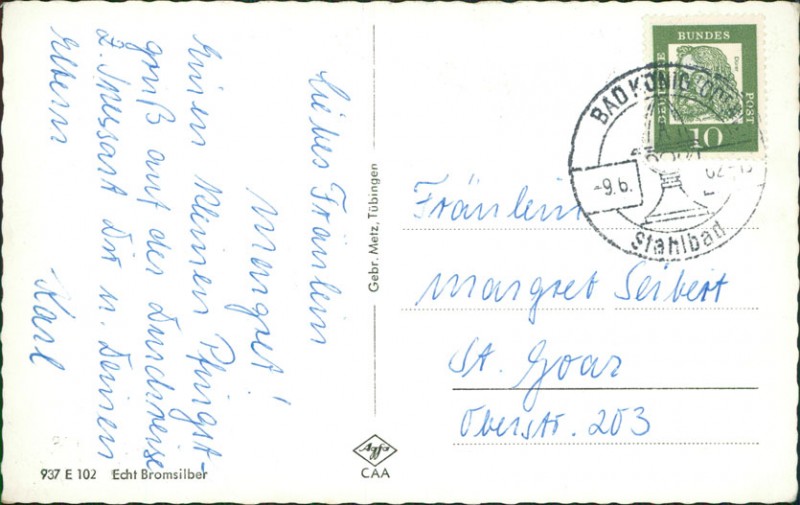 Liebes Fräulein
Margret!
Einen kleinen Pfingst-
gruß auf der Durchreise
z. Spessart Dir u. Deinen
Eltern
Karl
937 E 102 Echt Bromsilber
Gebr. Metz, Tübingen
Agfa
CAA
DEUTSCHE BUNDESPOST
Dürer
10
BAD KÖNIG
-9.6.
62
Stahlbad
Fräulein
Margret Seibert
St. Goar
Oberstr. 203